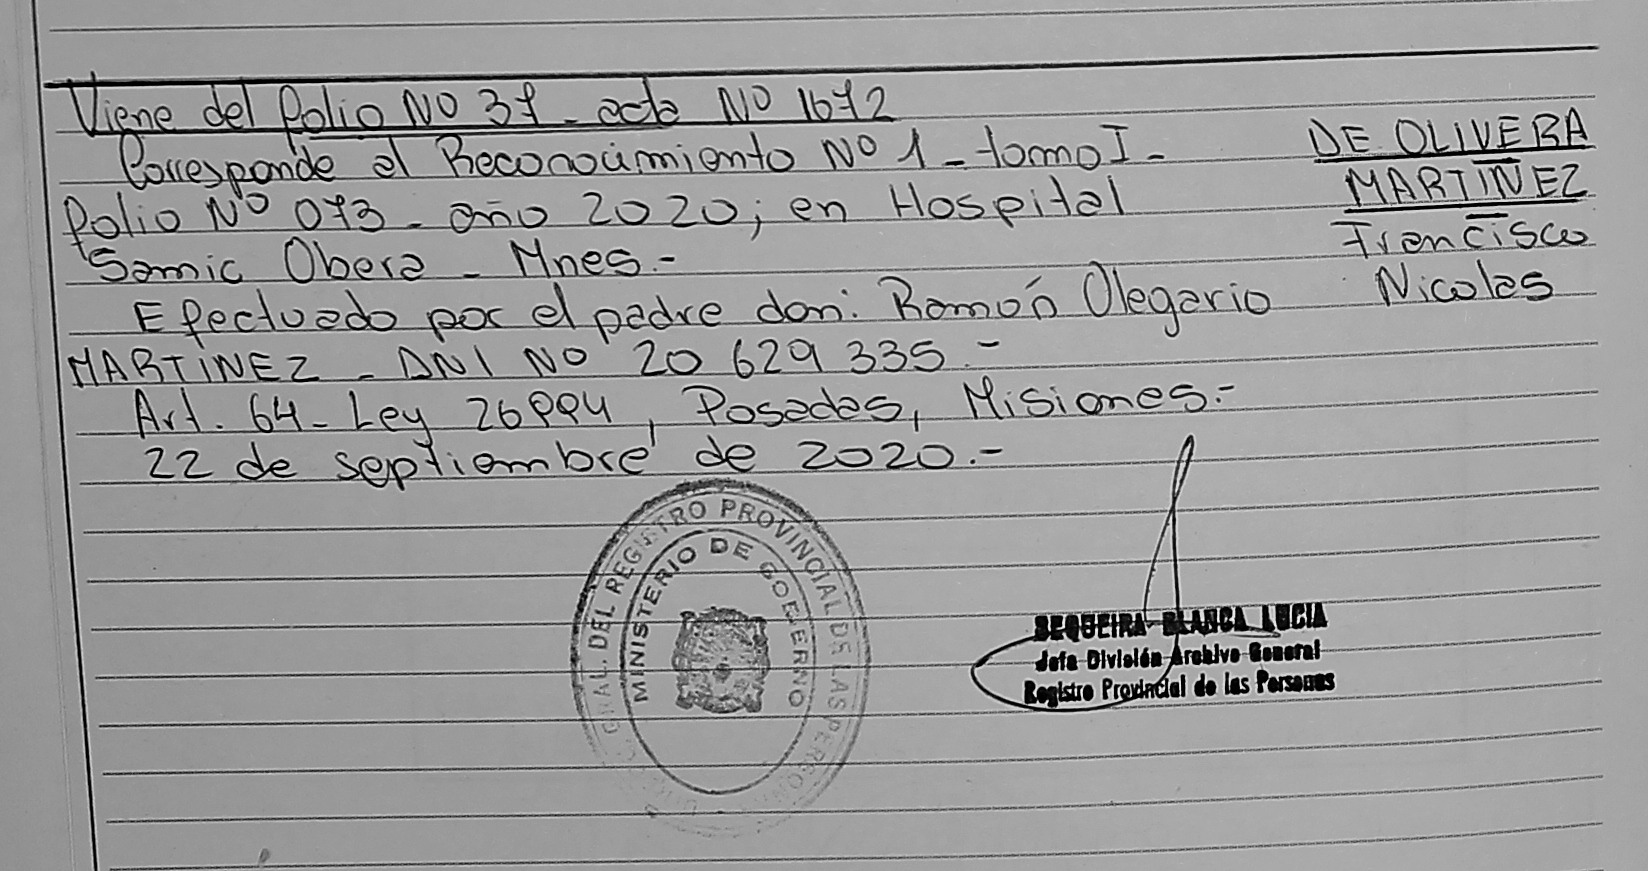 Viene del folio Nº 37 - acta Nº 1672
Corresponde al Reconocimiento Nº 1 - tomo I -
folio Nº 073 - año 2020; en Hospital
Samic Obera - Mnes.-
Efectuado por el padre don: Ramón Olegario
MARTINEZ - DNI Nº 20 629 335.-
Art. 64 - Ley 26994, Posadas, Misiones.-
22 de septiembre de 2020.-
DE OLIVERA
MARTINEZ
Francisco
Nicolas
GRAL. DEL REGISTRO PROVINCIAL DE LAS PERSONAS
MINISTERIO DE GOBIERNO
SEQUEIRA BLANCA LUCIA
Jefa División Archivo General
Registro Provincial de las Personas